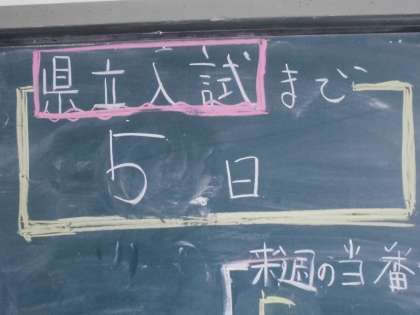 県立入試まで
5日
来週の当番